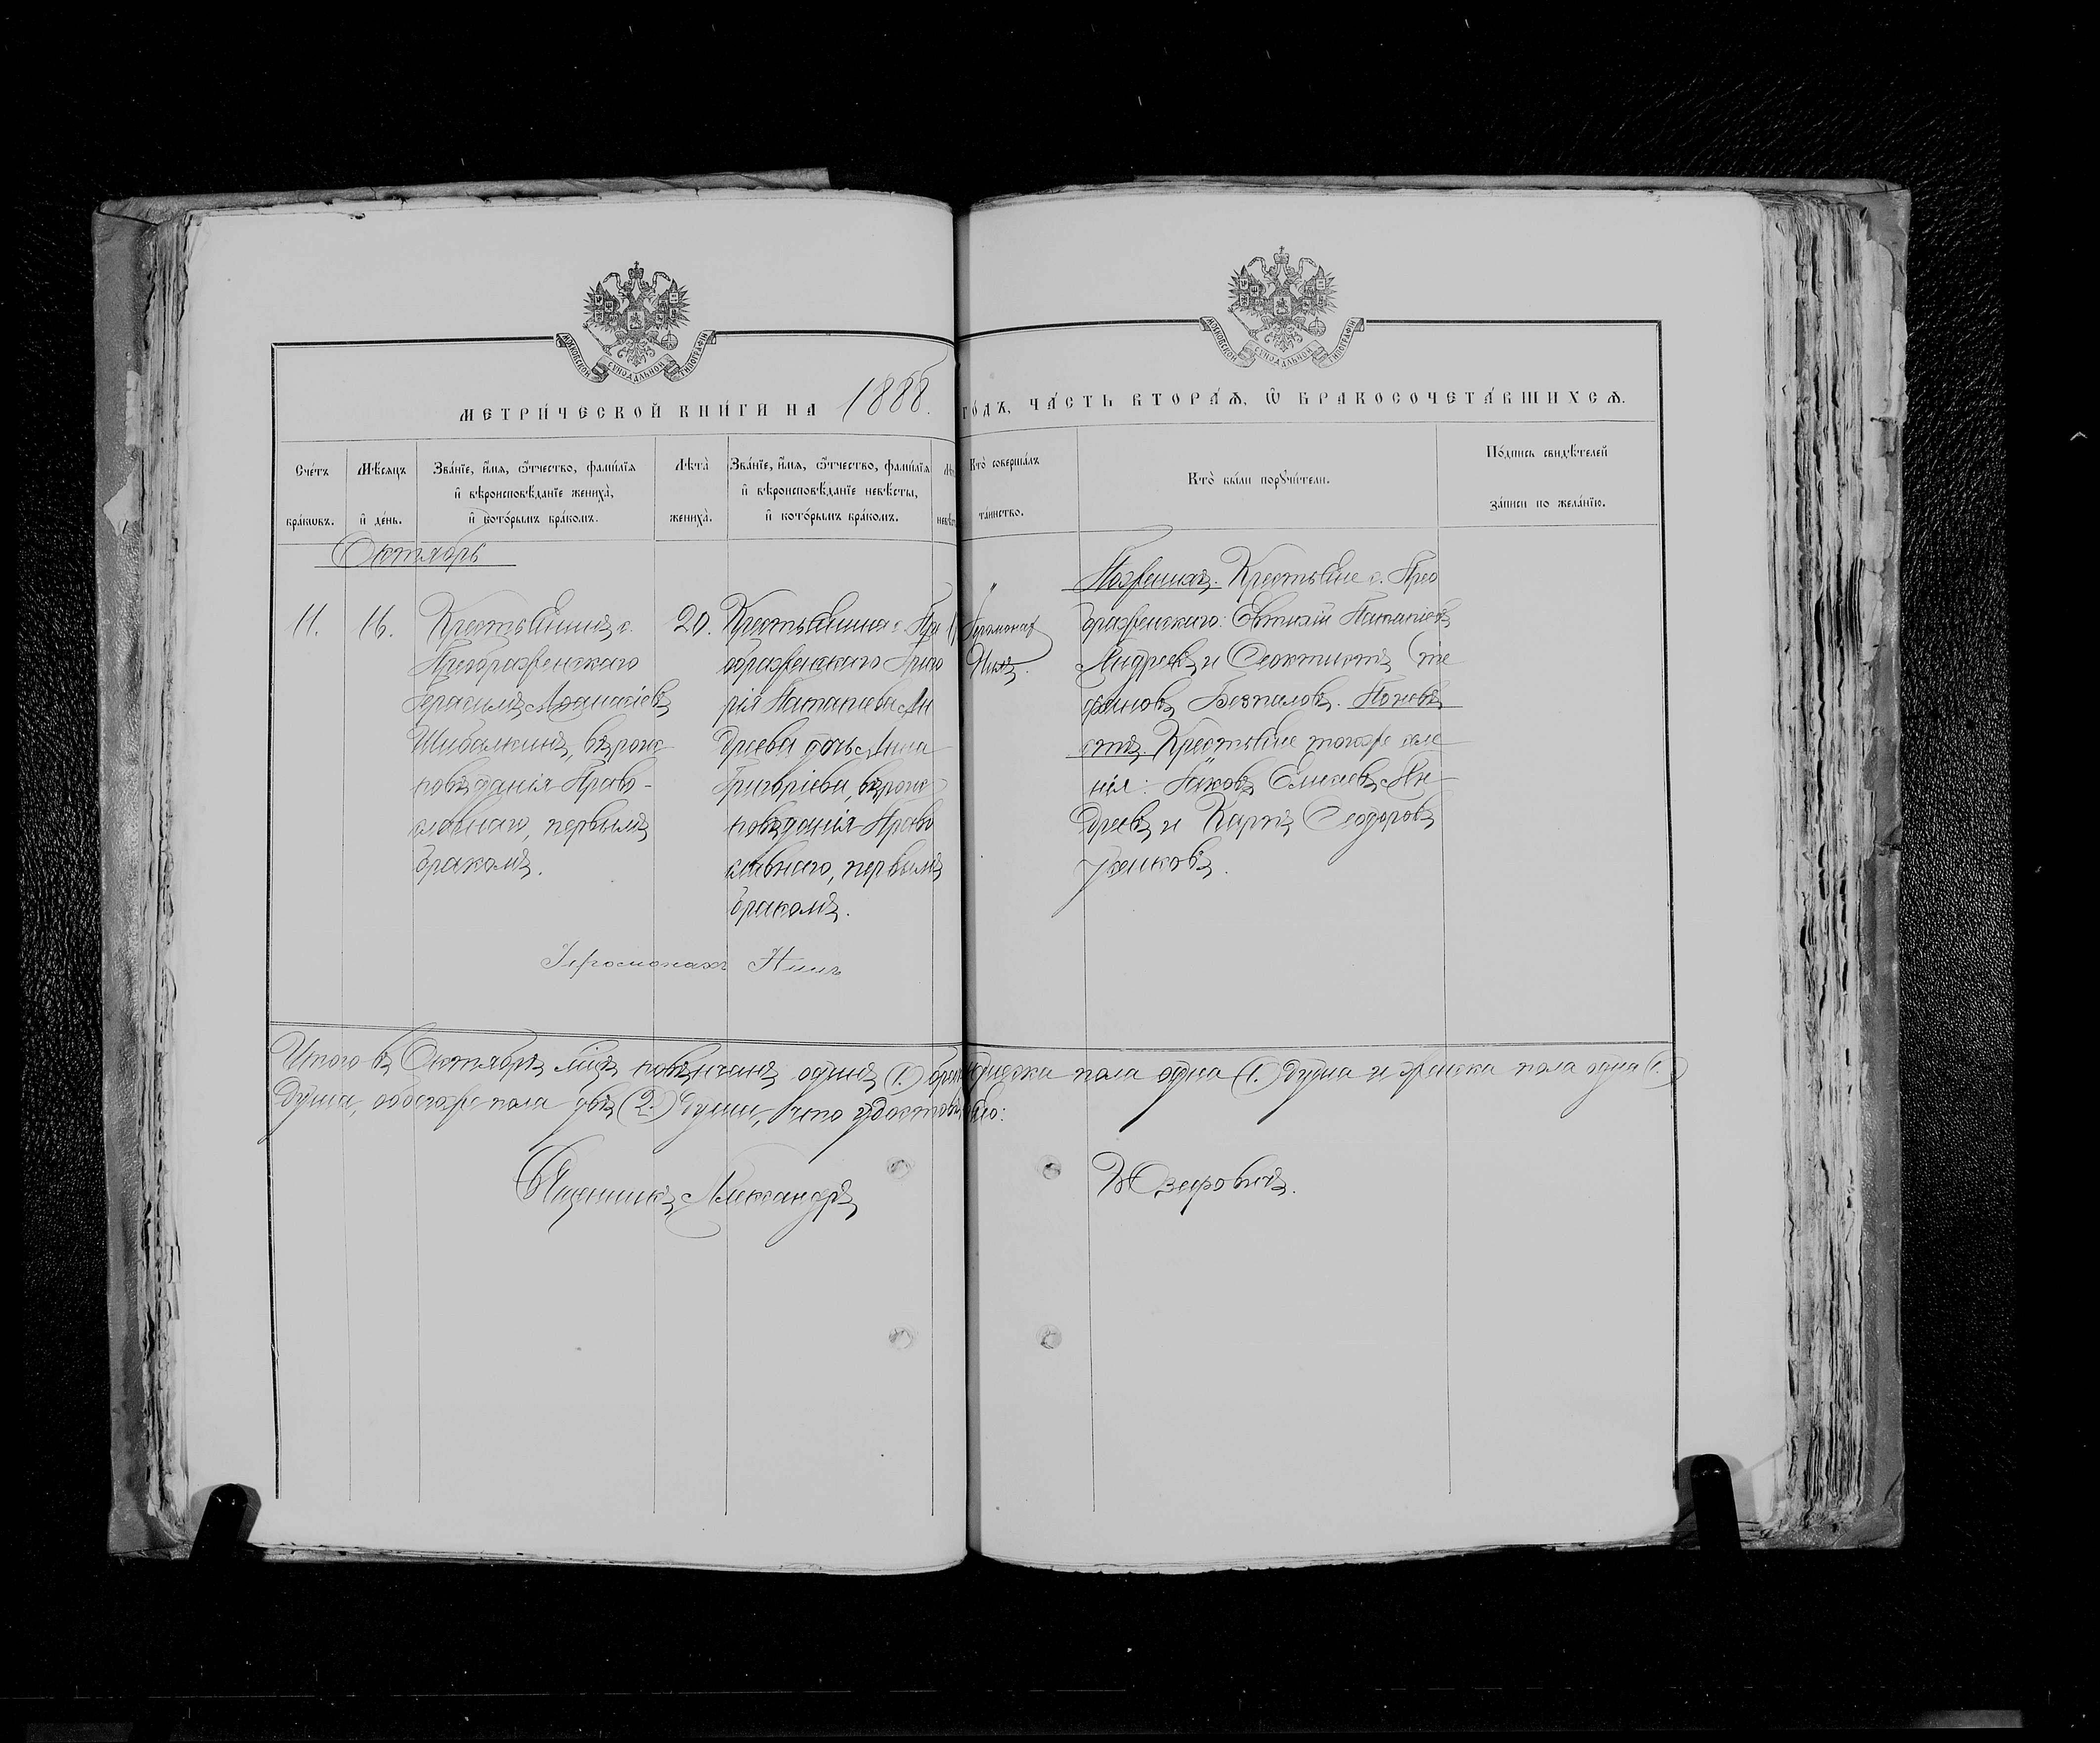 МОСКОВСКОЙ СѴНОДАЛЬНОЙ ТИПОГРАФІИ
МОСКОВСКОЙ СѴНОДАЛЬНОЙ ТИПОГРАФІИ
МЕТРИ́ЧЕСКОЙ КНИ́ГИ НА 1888. ГО́ДЪ, ЧА́СТЬ ВТОРА́Ѧ, Ѽ БРАКОСОЧЕТА́ВШИХСѦ.
Сче́тъ
бра́кѡвъ.
Мѣ́сяцъ
и҆ де́нь.
Зва́нїе, и҆́мѧ, ѻ҆́тчество, фамилїѧ
и҆ вѣроисповѣ́данїе жениха̀,
и҆ кото́рымъ бра́комъ.
Лѣта̀
жениха̀.
Зва́нїе, и҆́мѧ, ѻ҆́тчество, фамилїѧ
и҆ вѣроисповѣ́данїе невѣ́сты,
и҆ кото́рымъ бра́комъ.
Кто̀ соверша́лъ
та́инство.
Кто̀ бы́ли порꙋчи́тели.
По́дпись свидѣ́телей
за́писи по жела́нїю.
Октябрь
11.
16.
Крестьянинъ с.
Преображенскаго
Герасимъ Аѳанасіевъ
Шибалкинъ, вѣроис-
повѣданія Право-
славнаго, первымъ
бракомъ.
20.
Крестьянина с. Пре
ображенскаго Григо
рія Патапіева Ан
дреева дочь Анна
Григоріева, вѣроис
повѣданія Право
славнаго, первымъ
бракомъ.
Іеромонахъ
Нилъ.
По женихѣ: Крестьяне с. Прео
браженскаго: Евтихій Патапіевъ
Андреевъ и Ѳеоктистъ Сте
фановъ Безпаловъ. По невѣ
стѣ: Крестьяне тогоже селе
нія: Іаковъ Елисеевъ Ан-
дреевъ и Карпъ Ѳеодоровъ
Іеромонахъ Нилъ
Итого въ Октябрѣ мцѣ повѣнчанъ одинъ (1.) бракъ мужеска пола одна (1.) душа и женска пола одна (1.)
душа, обоегоже пола двѣ (2.) души, что удостовѣряю:
Священникъ Александръ Юзефовичъ.